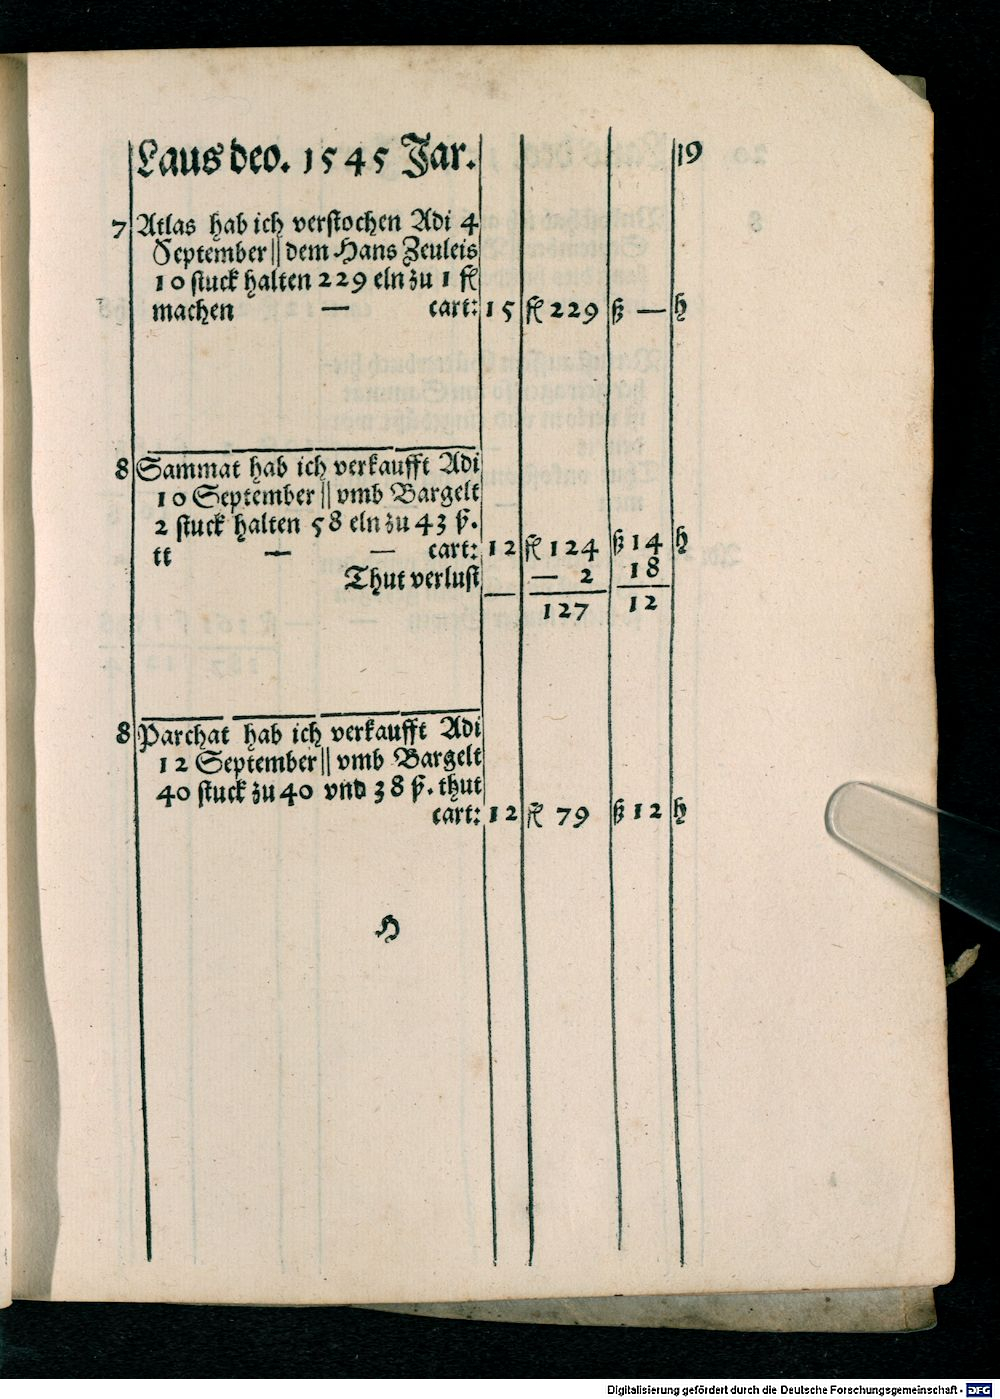 Laus deo. 1545 Jar. 19
7 Atlas hab ich verstochen Adi 4
September || dem Hans Zeuleis
10 stuck halten 229 eln zu 1 fl
machen — cart: 15 fl 229 ß — h
8 Sammat hab ich verkaufft Adi
10 September || vmb Bargelt
2 stuck halten 58 eln zu 43 ß.
tt — — cart: 12 fl 124 ß 14 h
Thut verlust — 2 18
127 12
8 Parchat hab ich verkaufft Adi
12 September || vmb Bargelt
40 stuck zu 40 vnd 38 ß. thut
cart: 12 fl 79 ß 12 h
H
Digitalisierung gefördert durch die Deutsche Forschungsgemeinschaft - DFG